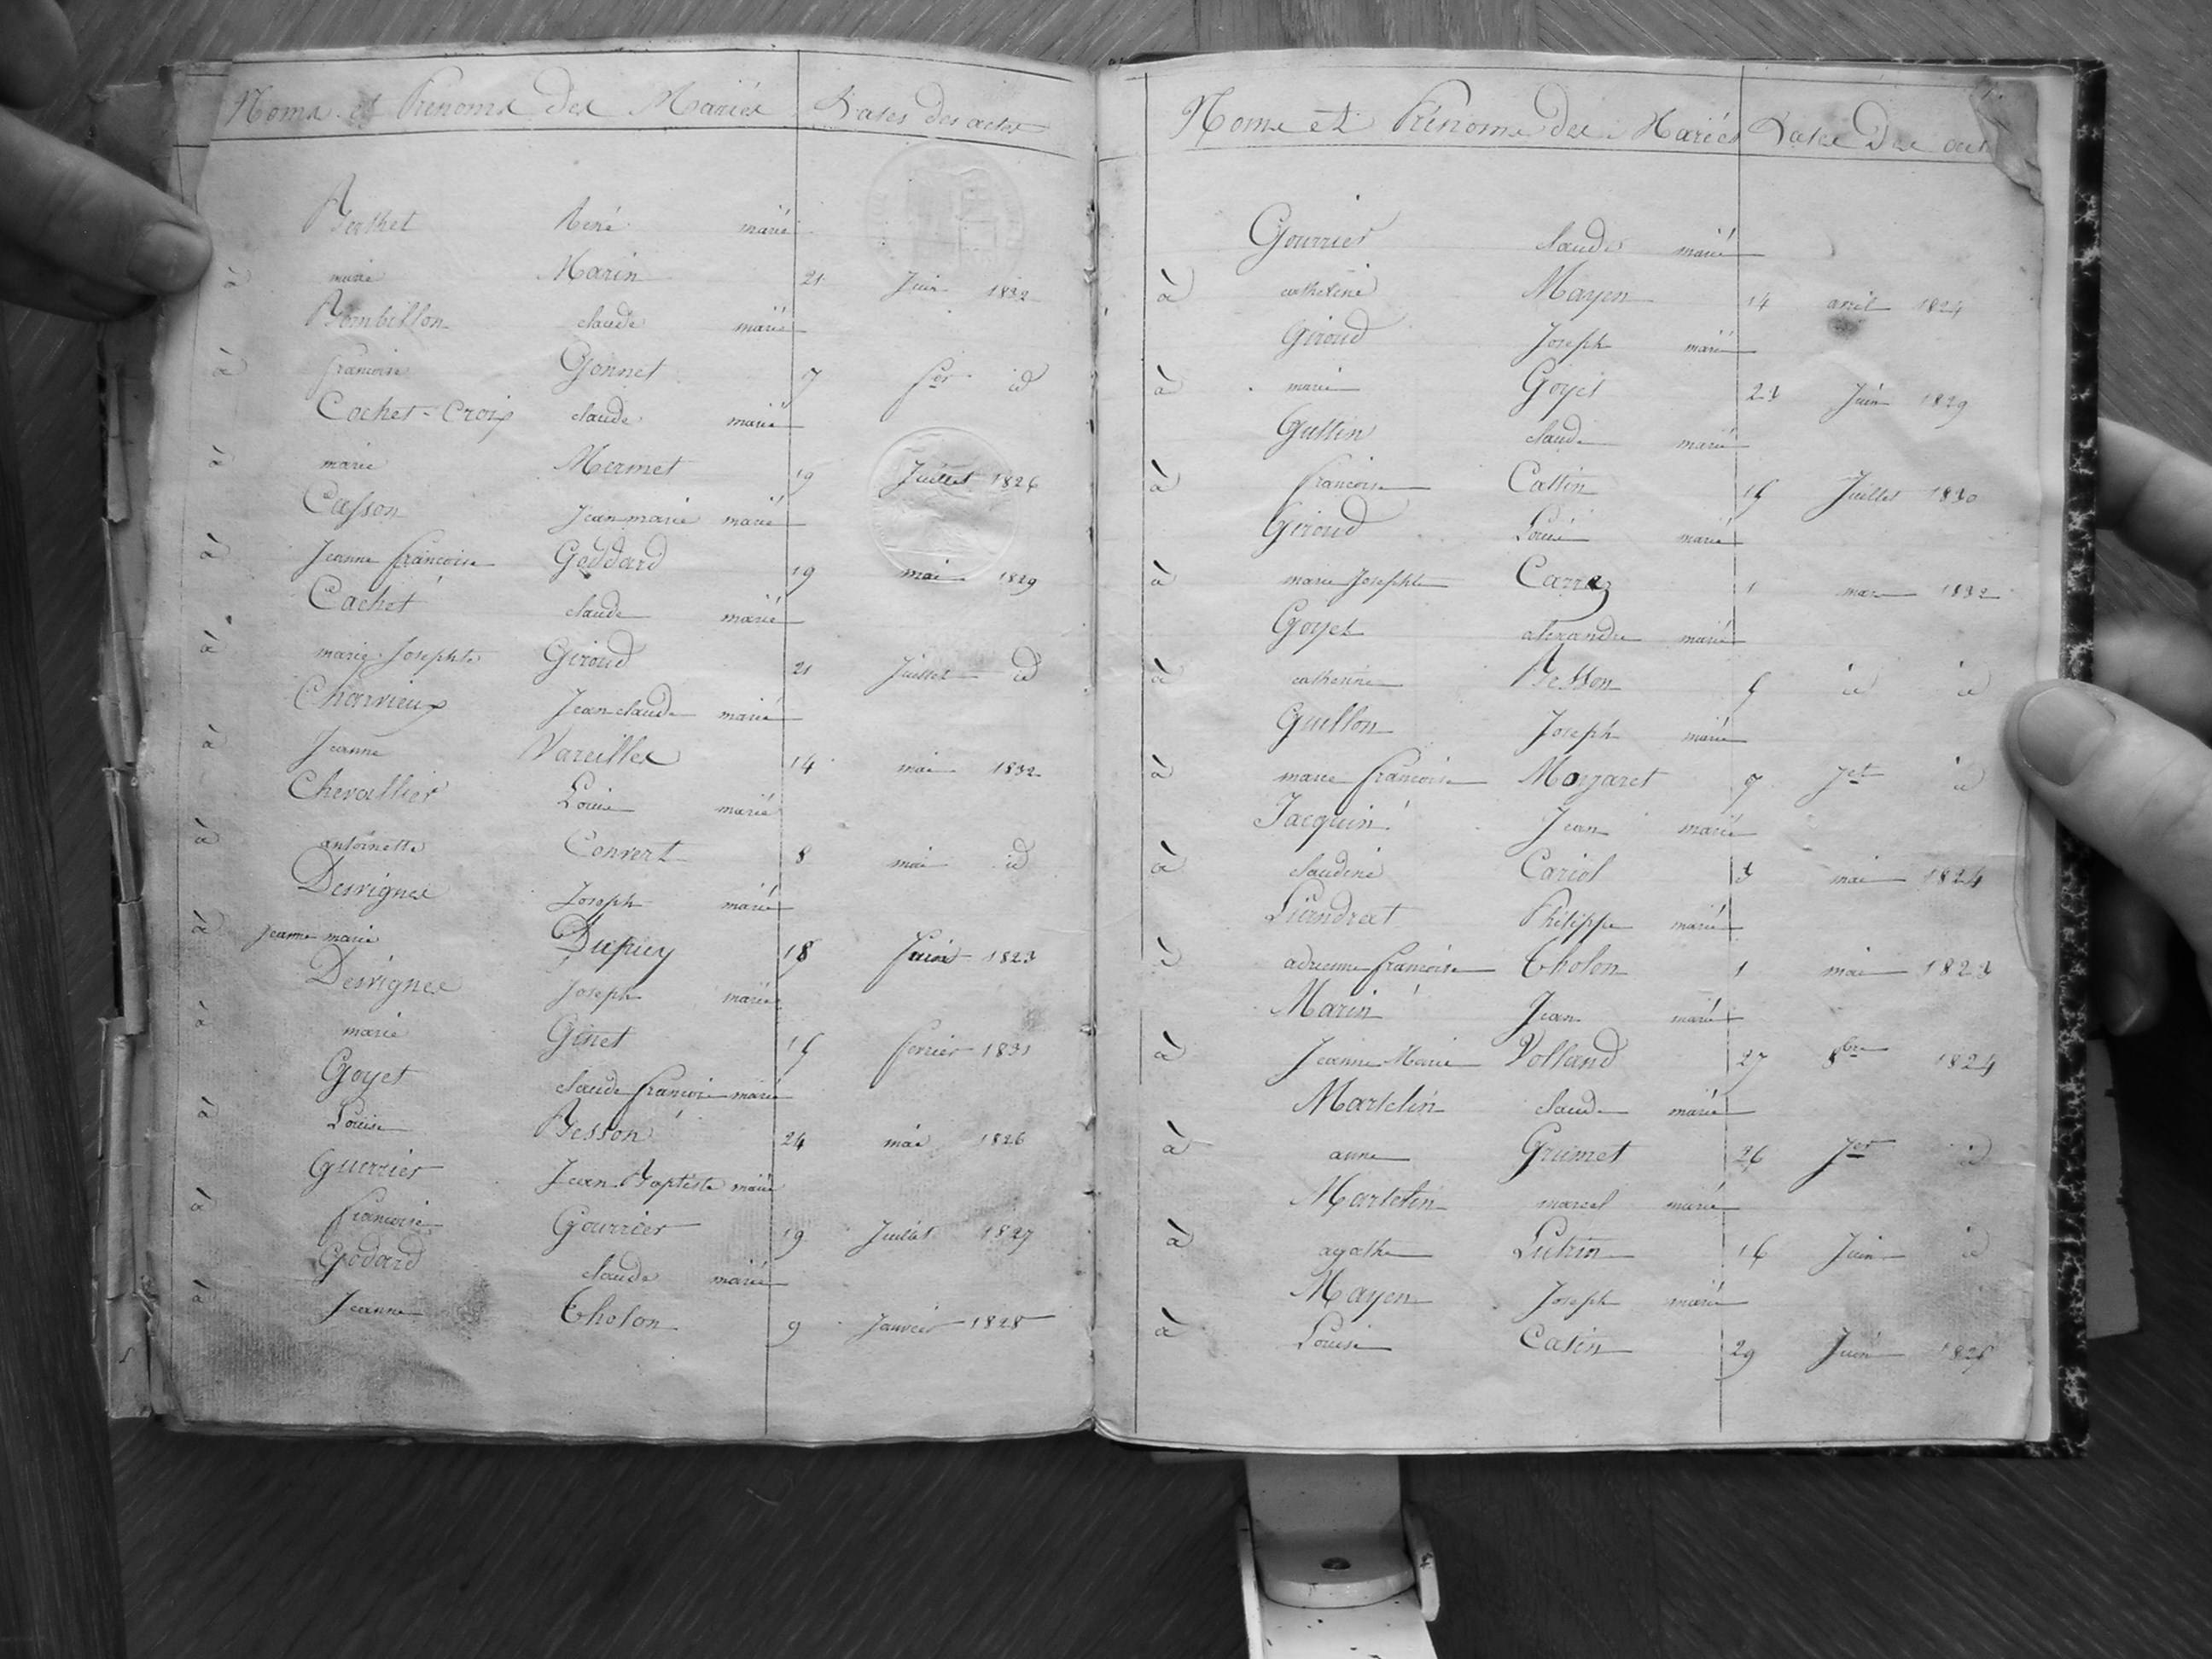 Noms et Prénoms des Mariés Dates des actes
Berthet René marié
à marie Marin 21 Juin 1832
Bombillon claude marié
à francoise Gonnet 7 fer id
Cochet-Croix claude marié
à marie Mermet 19 Juillet 1826
Casson Jean marie marié
à Jeanne francoise Goddard 19 mai 1829
Cachet claude marié
à marie Josephte Giroud 21 Juillet id
Charvieux Jean claude marié
à Jeanne Vareilles 14 mai 1832
Chevallier Louis marié
à antoinette Convert 8 mai id
Desvignes Joseph marié
à Jeanne marie Dupuy 18 Juin 1823
Desvignes Joseph marié
à marie Ginet 15 fevrier 1831
Goyet claude francois marié
à Louise Besson 24 mai 1826
Guerrier Jean Baptiste marié
à francoise Gourrier 19 Juillet 1827
Godard claude marié
à Jeanne Tholon 9 Janvier 1828
Noms et Prénoms des Mariés Dates des
Gourrier claude marié
à catherine Mayen 14 avril 1824
Giroud Joseph marié
à marie Goyet 23 Juin 1829
Guttin claude marié
à francoise Cattin 15 Juillet 1830
Giroud Louis marié
à marie Josephte Carraz 1 mars 1832
Goyet alexandre marié
à catherine Besson 5 id id
Guillon Joseph marié
à marie francoise Mazaret 7 Jet id
Jacquin Jean marié
à claudine Cariol 3 mai 1824
Liandrat Philippe marié
à adrienne francoise Tholon 1 mai 1823
Marin Jean marié
à Jeanne Marie Volland 27 8bre 1824
Martelin claude marié
à anne Grumet 26 Jer id
Martelin marcel marié
à agathe Lutrin 16 Juin id
Mayen Joseph marié
à Louise Catin 29 Juin 1825